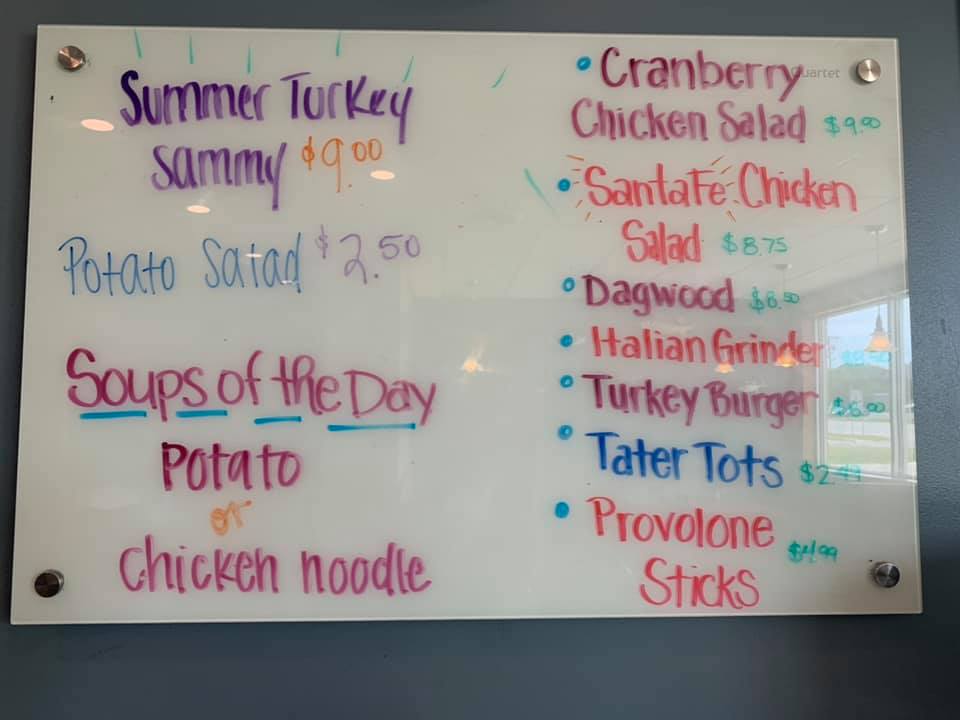 Summer Turkey
Sammy $9.00
Potato Salad $2.50
Soups of the Day
Potato
or
Chicken noodle
Quartet
Cranberry
Chicken Salad $9.00
Santa Fe Chicken
Salad $8.75
Dagwood
Italian Grinder
Turkey Burger
Tater Tots
Provolone
Sticks $4.99